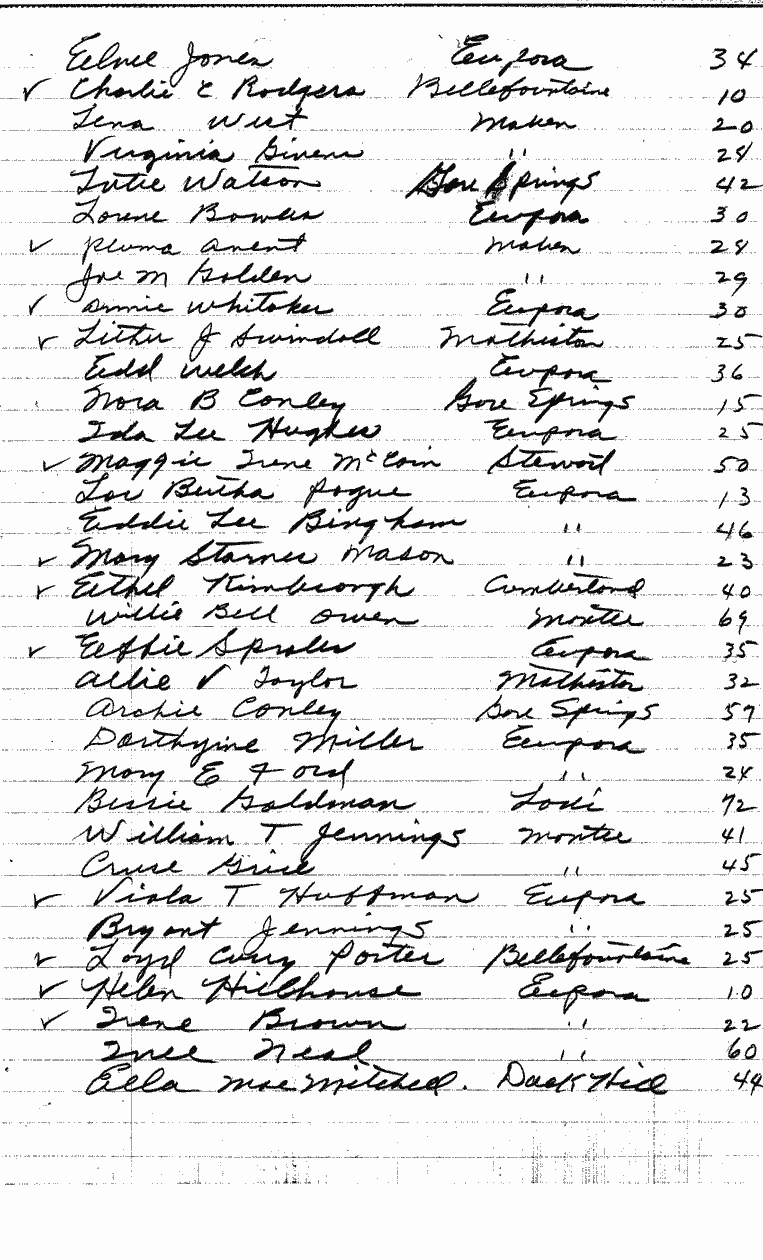 Jones Eupora 34
✓ Charlie C Rodgers Bellefountaine 10
Lena West Maben 20
Virginia Givens " 28
Tutie Watson Gore Springs 42
Lorene Bowles Eupora 30
✓ Pluma Avent Maben 28
Joe M Golden " 29
✓ Annie Whitaker Eupora 30
✓ Luther J Swindoll Mathiston 25
Edd Welch Eupora 36
Nora B Conley Gore Springs 15
Ida Lee Hughes Eupora 25
✓ Maggie Irene McCain Stewart 50
Lou Bertha Pogue Eupora 13
Eddie Lee Bingham " 46
✓ Mary Starnes Mason " 23
✓ Ethel Kimbrough Cumberland 40
Willie Bell Owen Montee 69
✓ Effie Sproles Eupora 35
Allie V Taylor Mathiston 32
Archie Conley Gore Springs 57
Dorthyine Miller Eupora 35
Mary E Ford " 24
Bessie Goldman Lodi 72
William T Jennings Montee 41
Cruse Grice " 45
✓ Viola T Huffman Eupora 25
Bryant Jennings " 25
✓ Loyd Curry Porter Bellefountaine 25
✓ Helen Hillhouse Eupora 10
✓ Irene Brown " 22
Inee Neal " 60
Ella Mae Mitchell. Duck Hill 44